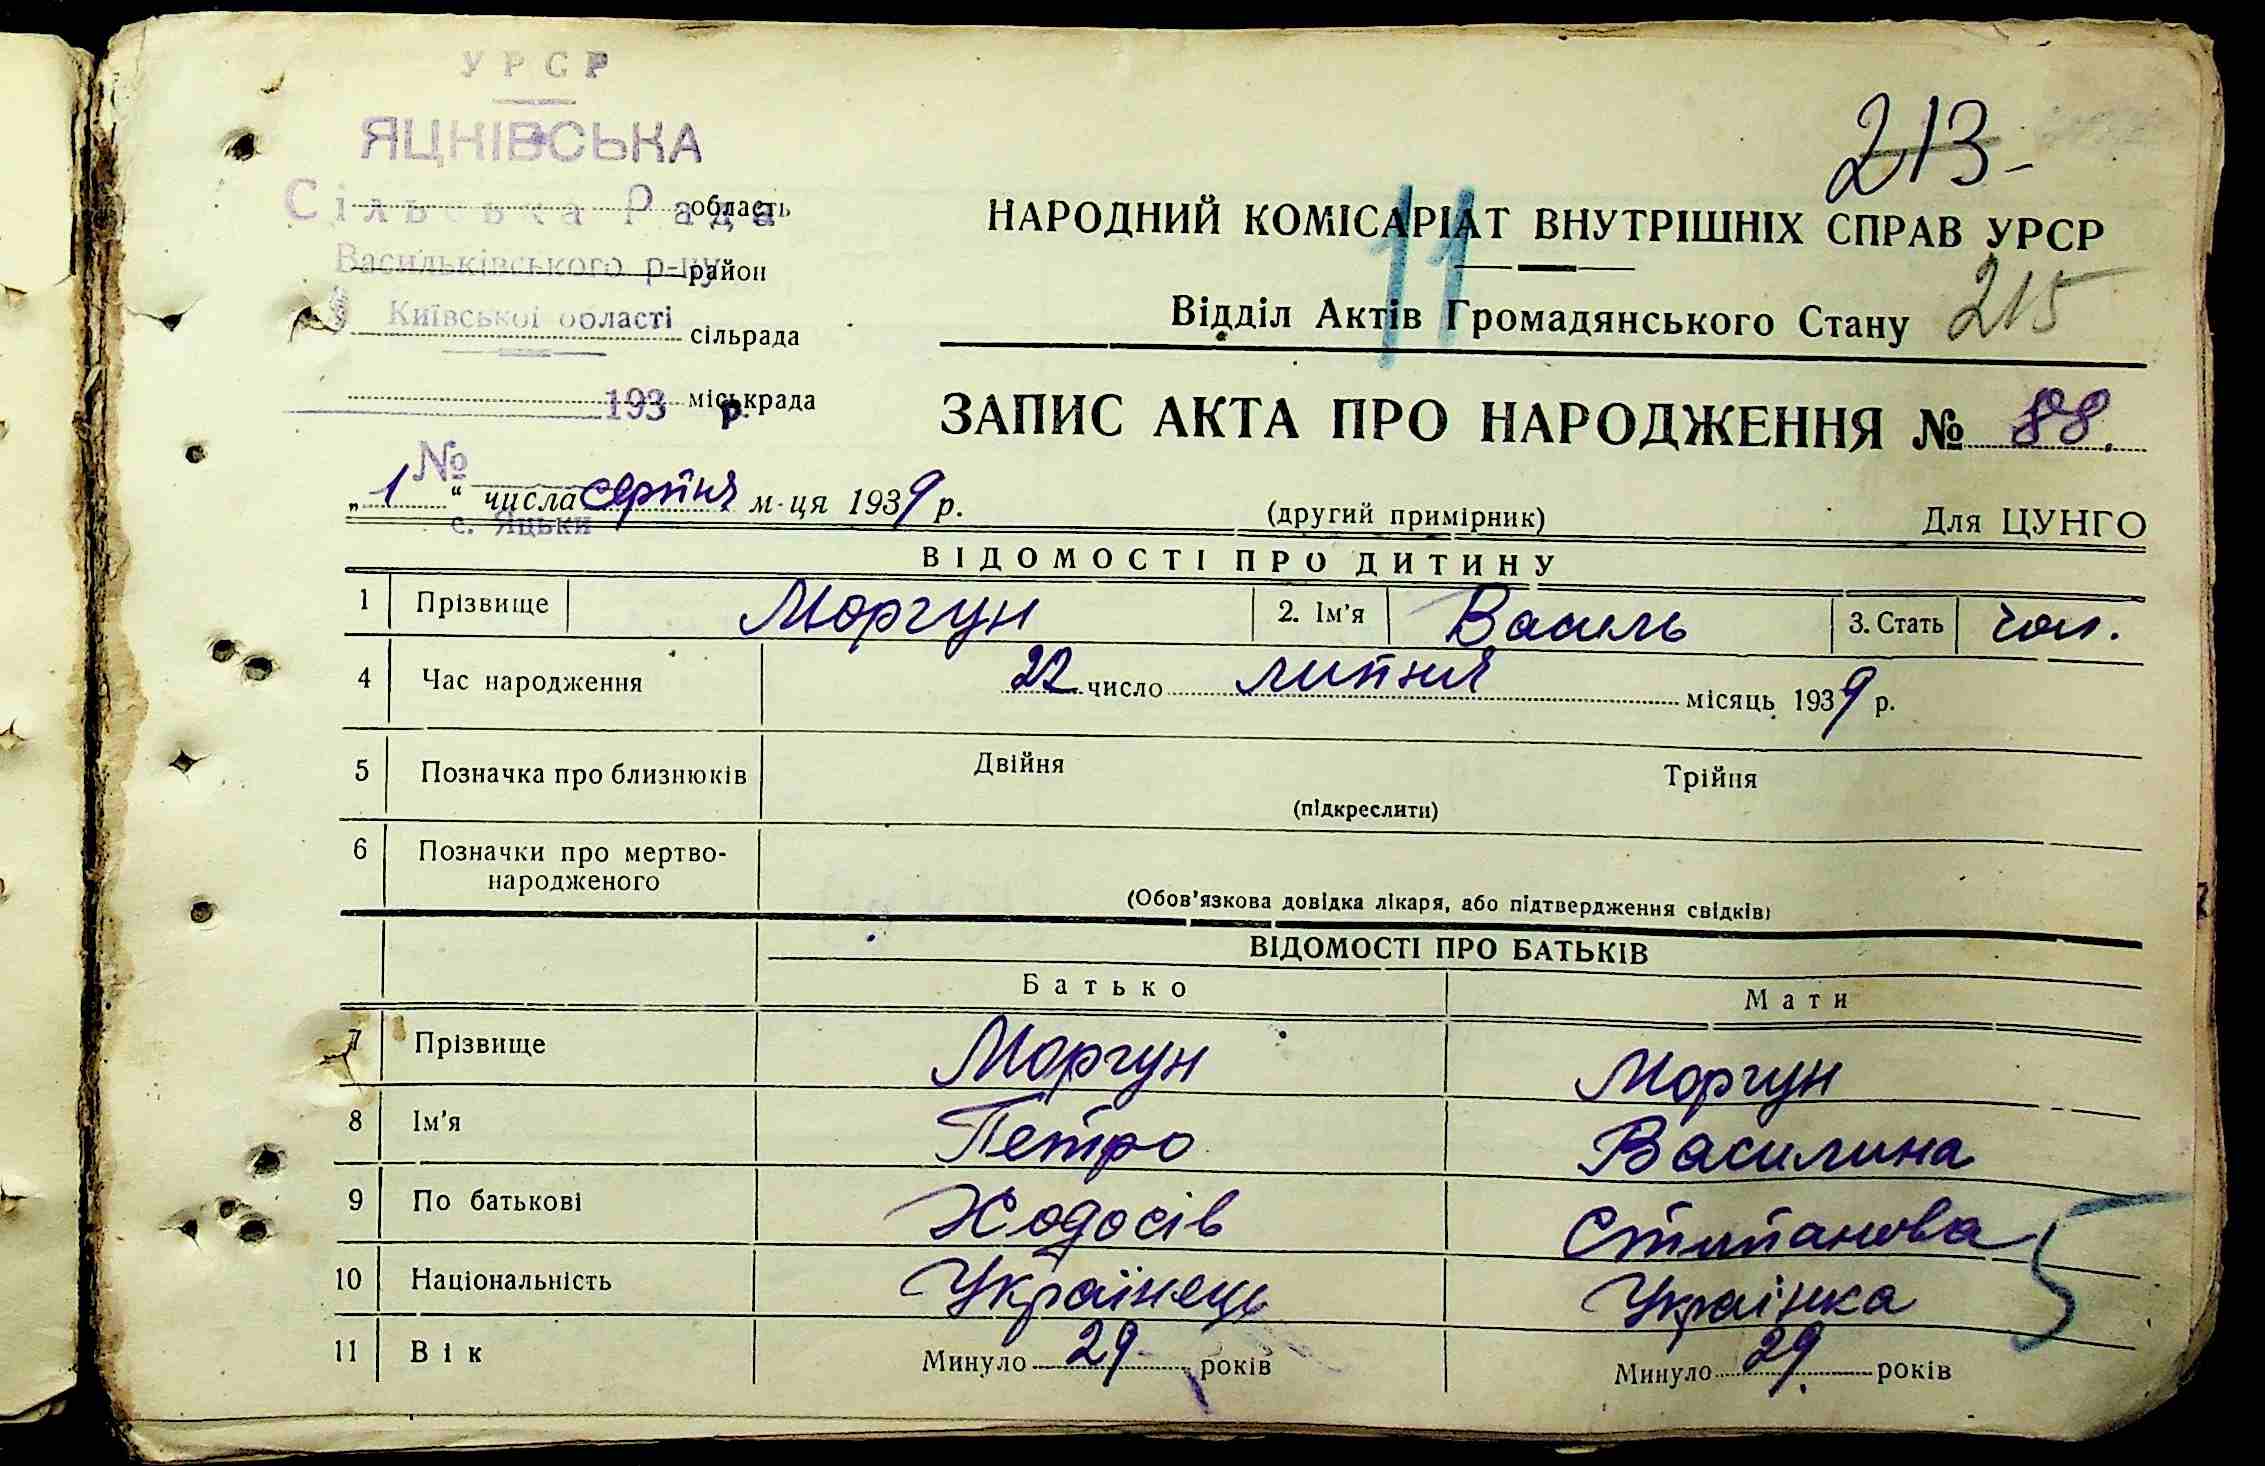 УРСР
ЯЦКІВСЬКА
Сільська Рада
область
Васильківського р-ну
район
Київської області
сільрада
193 р.
міськрада
№
с. Яцьки
213-
НАРОДНИЙ КОМІСАРІАТ ВНУТРІШНІХ СПРАВ УРСР
11
215
Відділ Актів Громадянського Стану
ЗАПИС АКТА ПРО НАРОДЖЕННЯ № 88.
„1“ числа серпня м-ця 1939 р.
(другий примірник)
Для ЦУНГО
ВІДОМОСТІ ПРО ДИТИНУ
1 Прізвище Моргун 2. Ім'я Василь 3. Стать чол.
4 Час народження 22 число липня місяць 1939 р.
5 Позначка про близнюків Двійня Трійня
(підкреслити)
6 Позначки про мертво-
народженого
(Обов'язкова довідка лікаря, або підтвердження свідків)
ВІДОМОСТІ ПРО БАТЬКІВ
Батько Мати
7 Прізвище Моргун Моргун
8 Ім'я Петро Василина
9 По батькові Ходосів Степанова
10 Національність Українець Українка
5
11 Вік Минуло 29 років Минуло 29 років